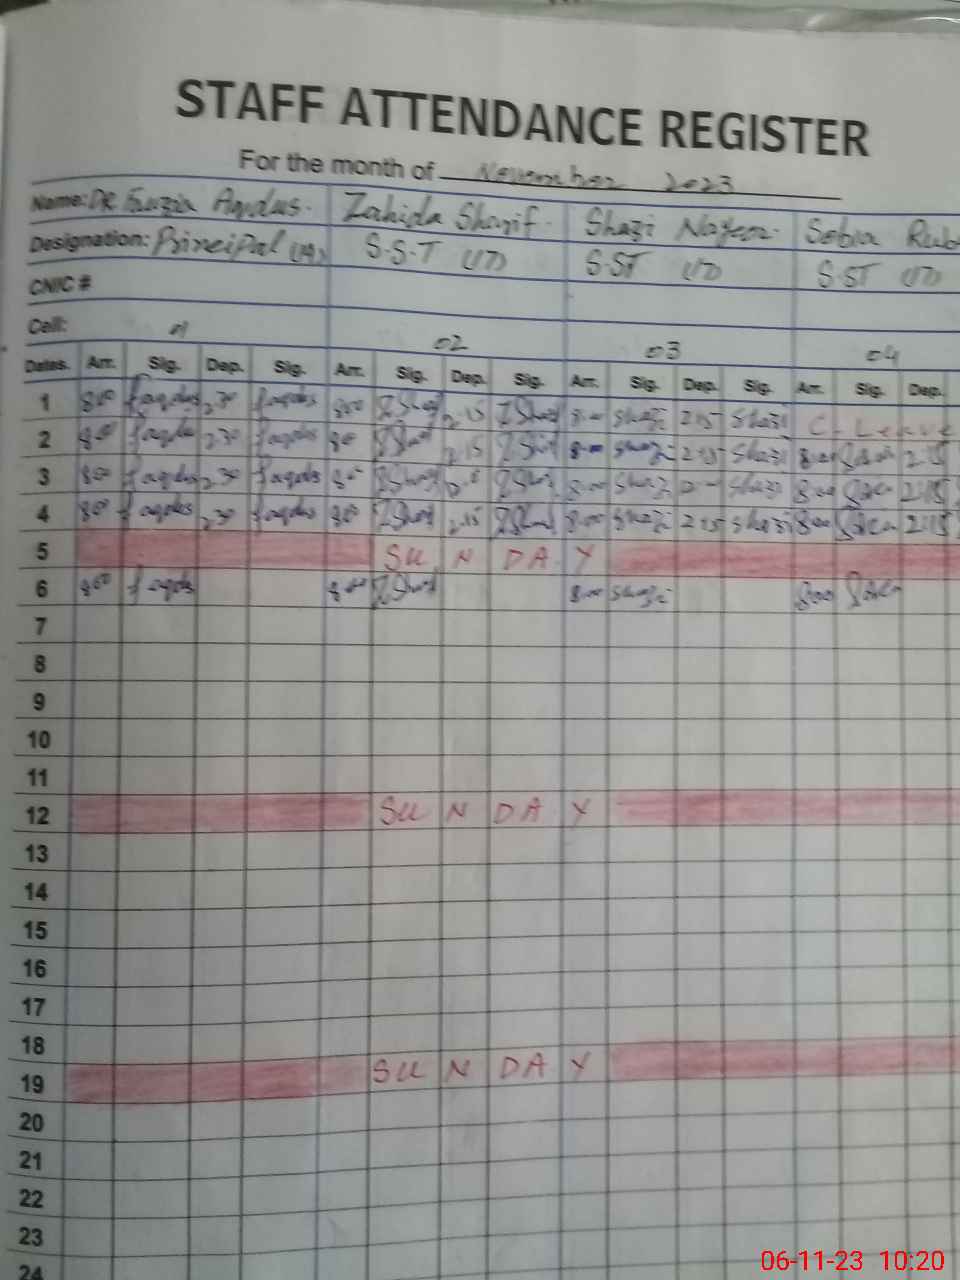 STAFF ATTENDANCE REGISTER
For the month of November 2023
Name: DR Fauzia Aqdus. Zahida Sharif. Shazi Nayeer. Sobia Rub
Designation: Principal S.S.T S.ST S.ST
CNIC #
Cell: 01 02 03 04
Dates. Arr. Sig. Dep. Sig. Arr. Sig. Dep. Sig. Arr. Sig. Dep. Sig. Arr. Sig. Dep.
1 800 faqdus 2.30 faqdus 800 ZSharif 2.15 ZSharif 8:00 Shazi 2:15 Shazi C. Leave
2 800 faqdus 230 faqdus 80 ZSharif 2.15 ZSharif 8:00 Shazi 2:15 Shazi 8:00 2:15
3 800 faqdus 2.30 faqdus 80 ZSharif ZSharif 8:00 Shazi Shazi 8:00 2:15
4 80 faqdus 230 faqdus 80 ZSharif 2.15 ZSharif 8:00 Shazi 2:15 Shazi 8:00 2:15
5 SUNDAY
6 800 faqdus 800 ZSharif 8:00 Shazi 8:00
7
8
9
10
11
12 SUNDAY
13
14
15
16
17
18
19 SUNDAY
20
21
22
23
24
06-11-23 10:20